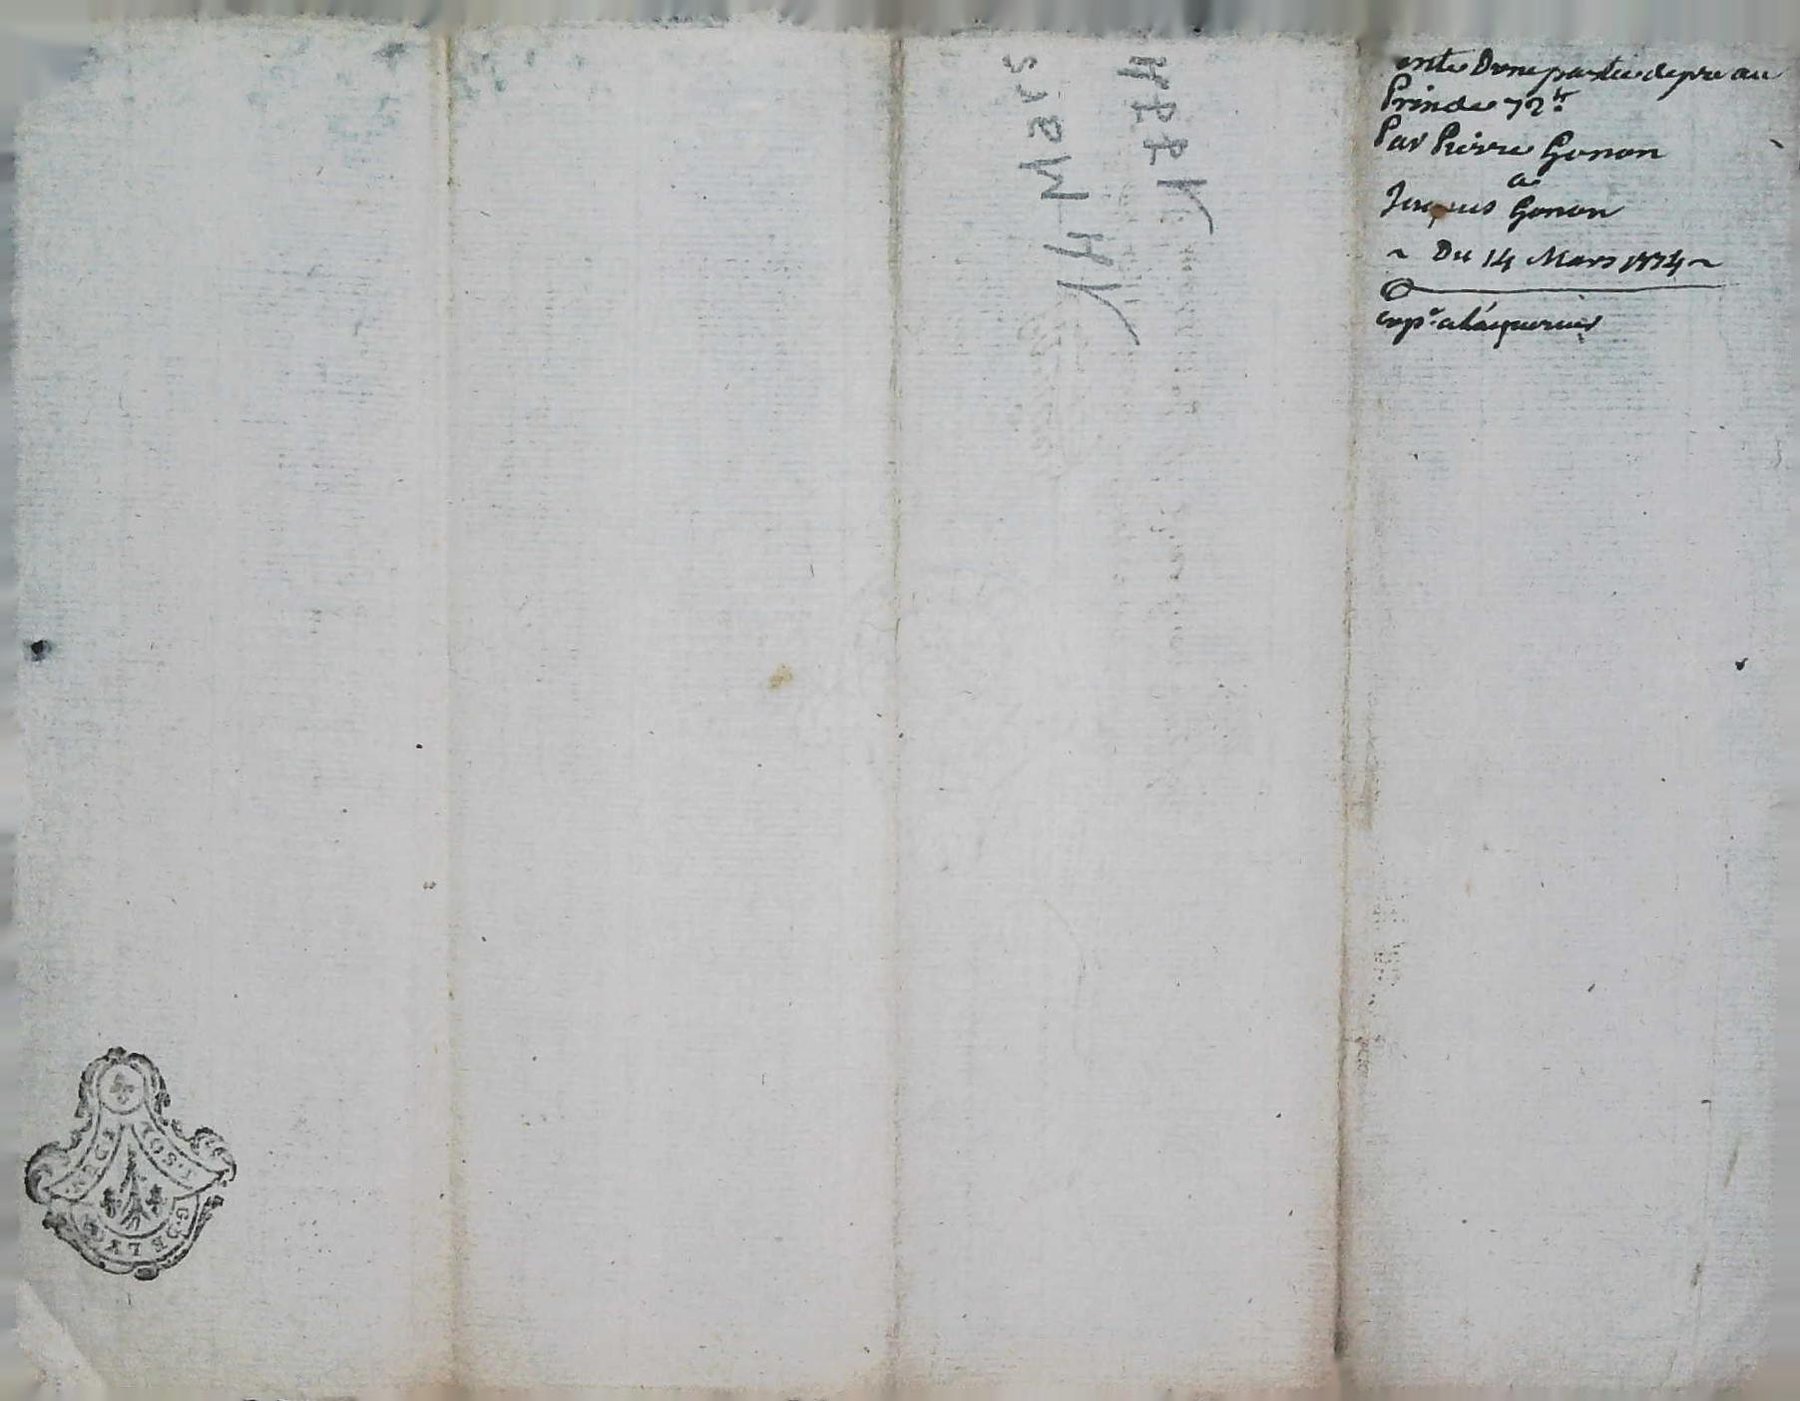 ente Dune partie de pre au
Prix de 72 ₶.
Par Pierre Gonon
a
Jacques Gonon
~ Du 14 Mars 1774 ~
exp.° a l'acquereur
14 Mars
1774
G. DE LYON